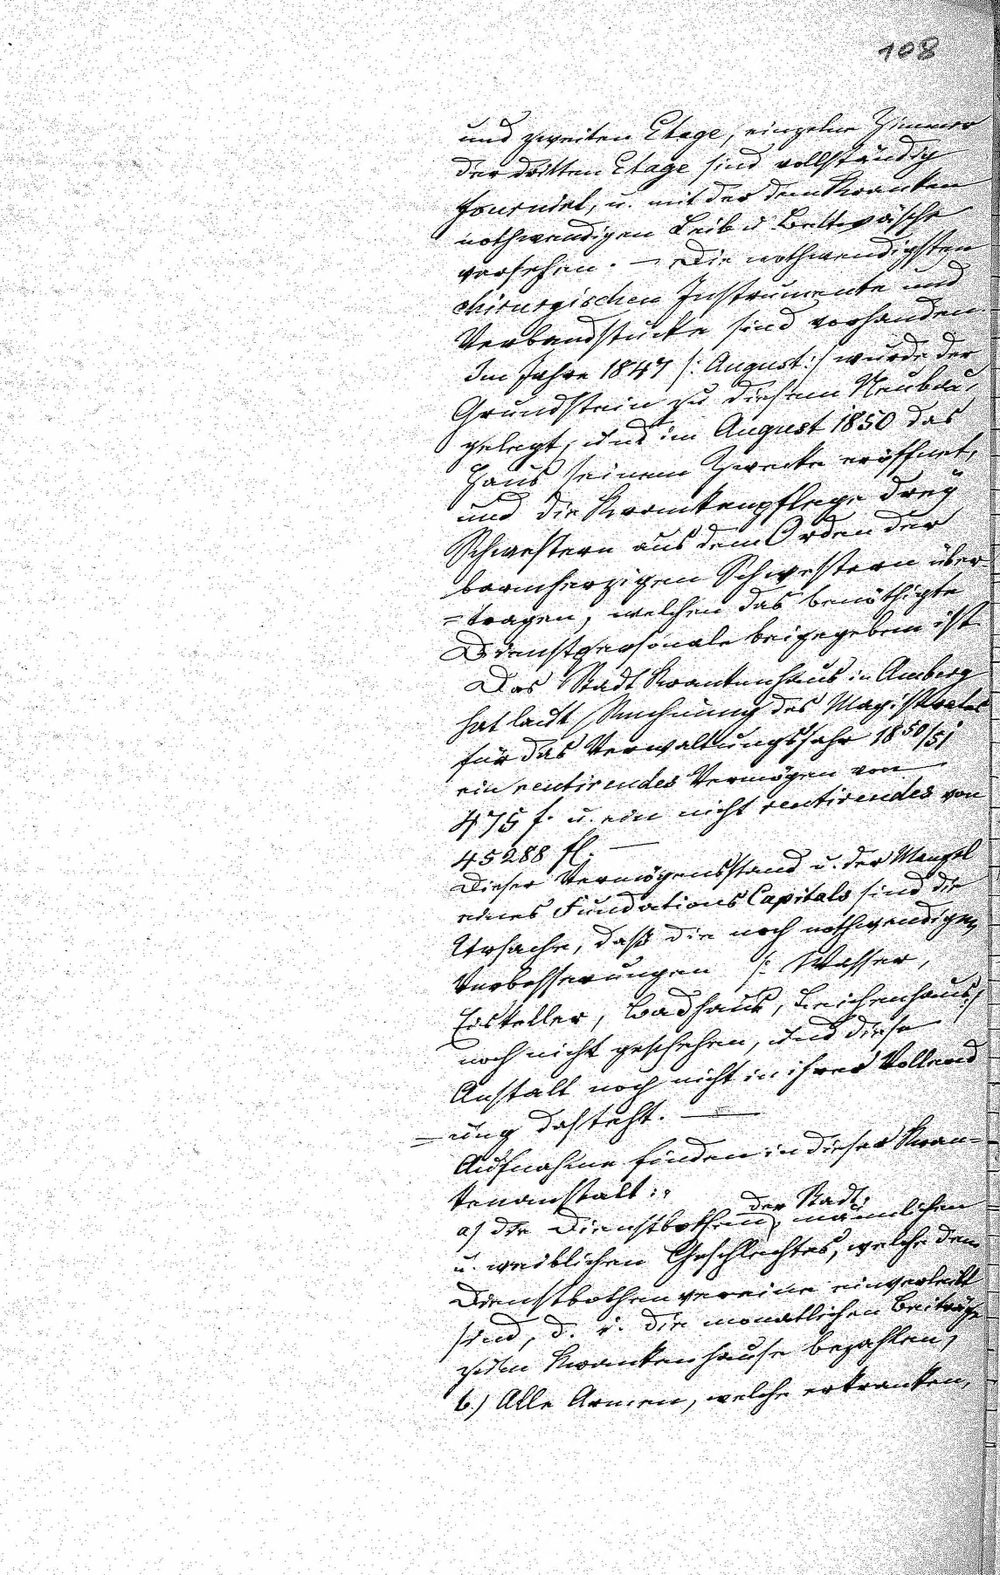 108
und zweiten Etage, einzelne Zimmer
der dritten Etage sind vollständig
fournirt, u. mit der dem Kranken
nothwendigen Leib u Bettwäsche
versehen. — Die nothwendigsten
chirurgischen Instrumente und
Verbandstücke sind vorhanden.
Im Jahre 1847 /: August :/ wurde der
Grundstein zu diesem Neubau
gelegt, und im August 1850 das
Haus seinem Zwecke eröffnet,
und die Krankenpflege drey
Schwestern aus dem Orden der
barmherzigen Schwestern über
=tragen, welchen das benöthigte
Dienstpersonale beigegeben ist
Das Stadt Krankenhaus in Amberg
hat laut Rechnung des Magistrates
für das Verwaltungsjahr 1850/51
ein rentirendes Vermögen von
475 f. u. ein nicht rentirendes von
45288 fl. —
Dieser Vermögensstand u. der Mangel
eines Fundations Capitals sind die
Ursache, daß die noch nothwendigen
Verbesserungen /: Wasser,
Eiskeller, Badhaus, Leichenhaus :/
noch nicht geschehen, und diese
Anstalt noch nicht in ihrer Vollend
=ung dasteht. —
Aufnahme finden in dieser Kran-
kenanstalt :,
a) die Dienstbothen der Stadt, männlichen
u. weiblichen Geschlechtes, welche dem
Dienstbothenvereine einverleibt
sind, d. i. die monatlichen Beiträge
zum Krankenhause bezahlen,
b.) Alle Armen, welche erkranken,